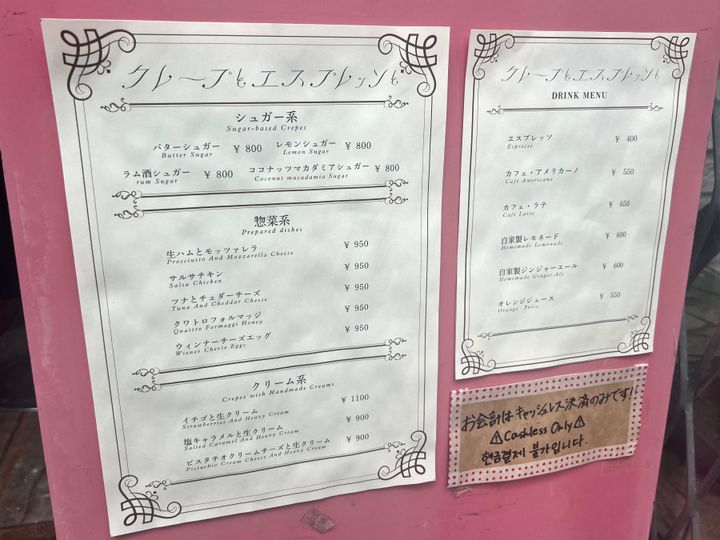 クレープとエスプレッソと
シュガー系
Sugar-based Crepes
バターシュガー ¥ 800 レモンシュガー ¥ 800
Butter Sugar Lemon Sugar
ラム酒シュガー ¥ 800 ココナッツマカダミアシュガー ¥ 800
rum Sugar Coconut macadamia Sugar
惣菜系
Prepared dishes
生ハムとモッツァレラ ¥ 950
Prosciutto And Mozzarella Cheese
サルサチキン ¥ 950
Salsa Chicken
ツナとチェダーチーズ ¥ 950
Tuna And Cheddar Cheese
クワトロフォルマッジ ¥ 950
Quattro Formaggi Honey
ウィンナーチーズエッグ ¥ 950
Wiener Cheese Eggs
クリーム系
Crepes with Handmade Creams
イチゴと生クリーム ¥ 1100
Strawberries And Heavy Cream
塩キャラメルと生クリーム ¥ 900
Salted Caramel And Heavy Cream
ピスタチオクリームチーズと生クリーム ¥ 900
Pistachio Cream Cheese And Heavy Cream
クレープとエスプレッソと
DRINK MENU
エスプレッソ ¥ 400
Espresso
カフェ・アメリカーノ ¥ 550
Café Americano
カフェ・ラテ ¥ 650
Café Latte
自家製レモネード ¥ 600
Homemade Lemonade
自家製ジンジャーエール ¥ 600
Homemade Ginger Ale
オレンジジュース ¥ 550
Orange Juice
お会計はキャッシュレス決済のみです!
⚠Cashless Only⚠
현금결제 불가입니다.